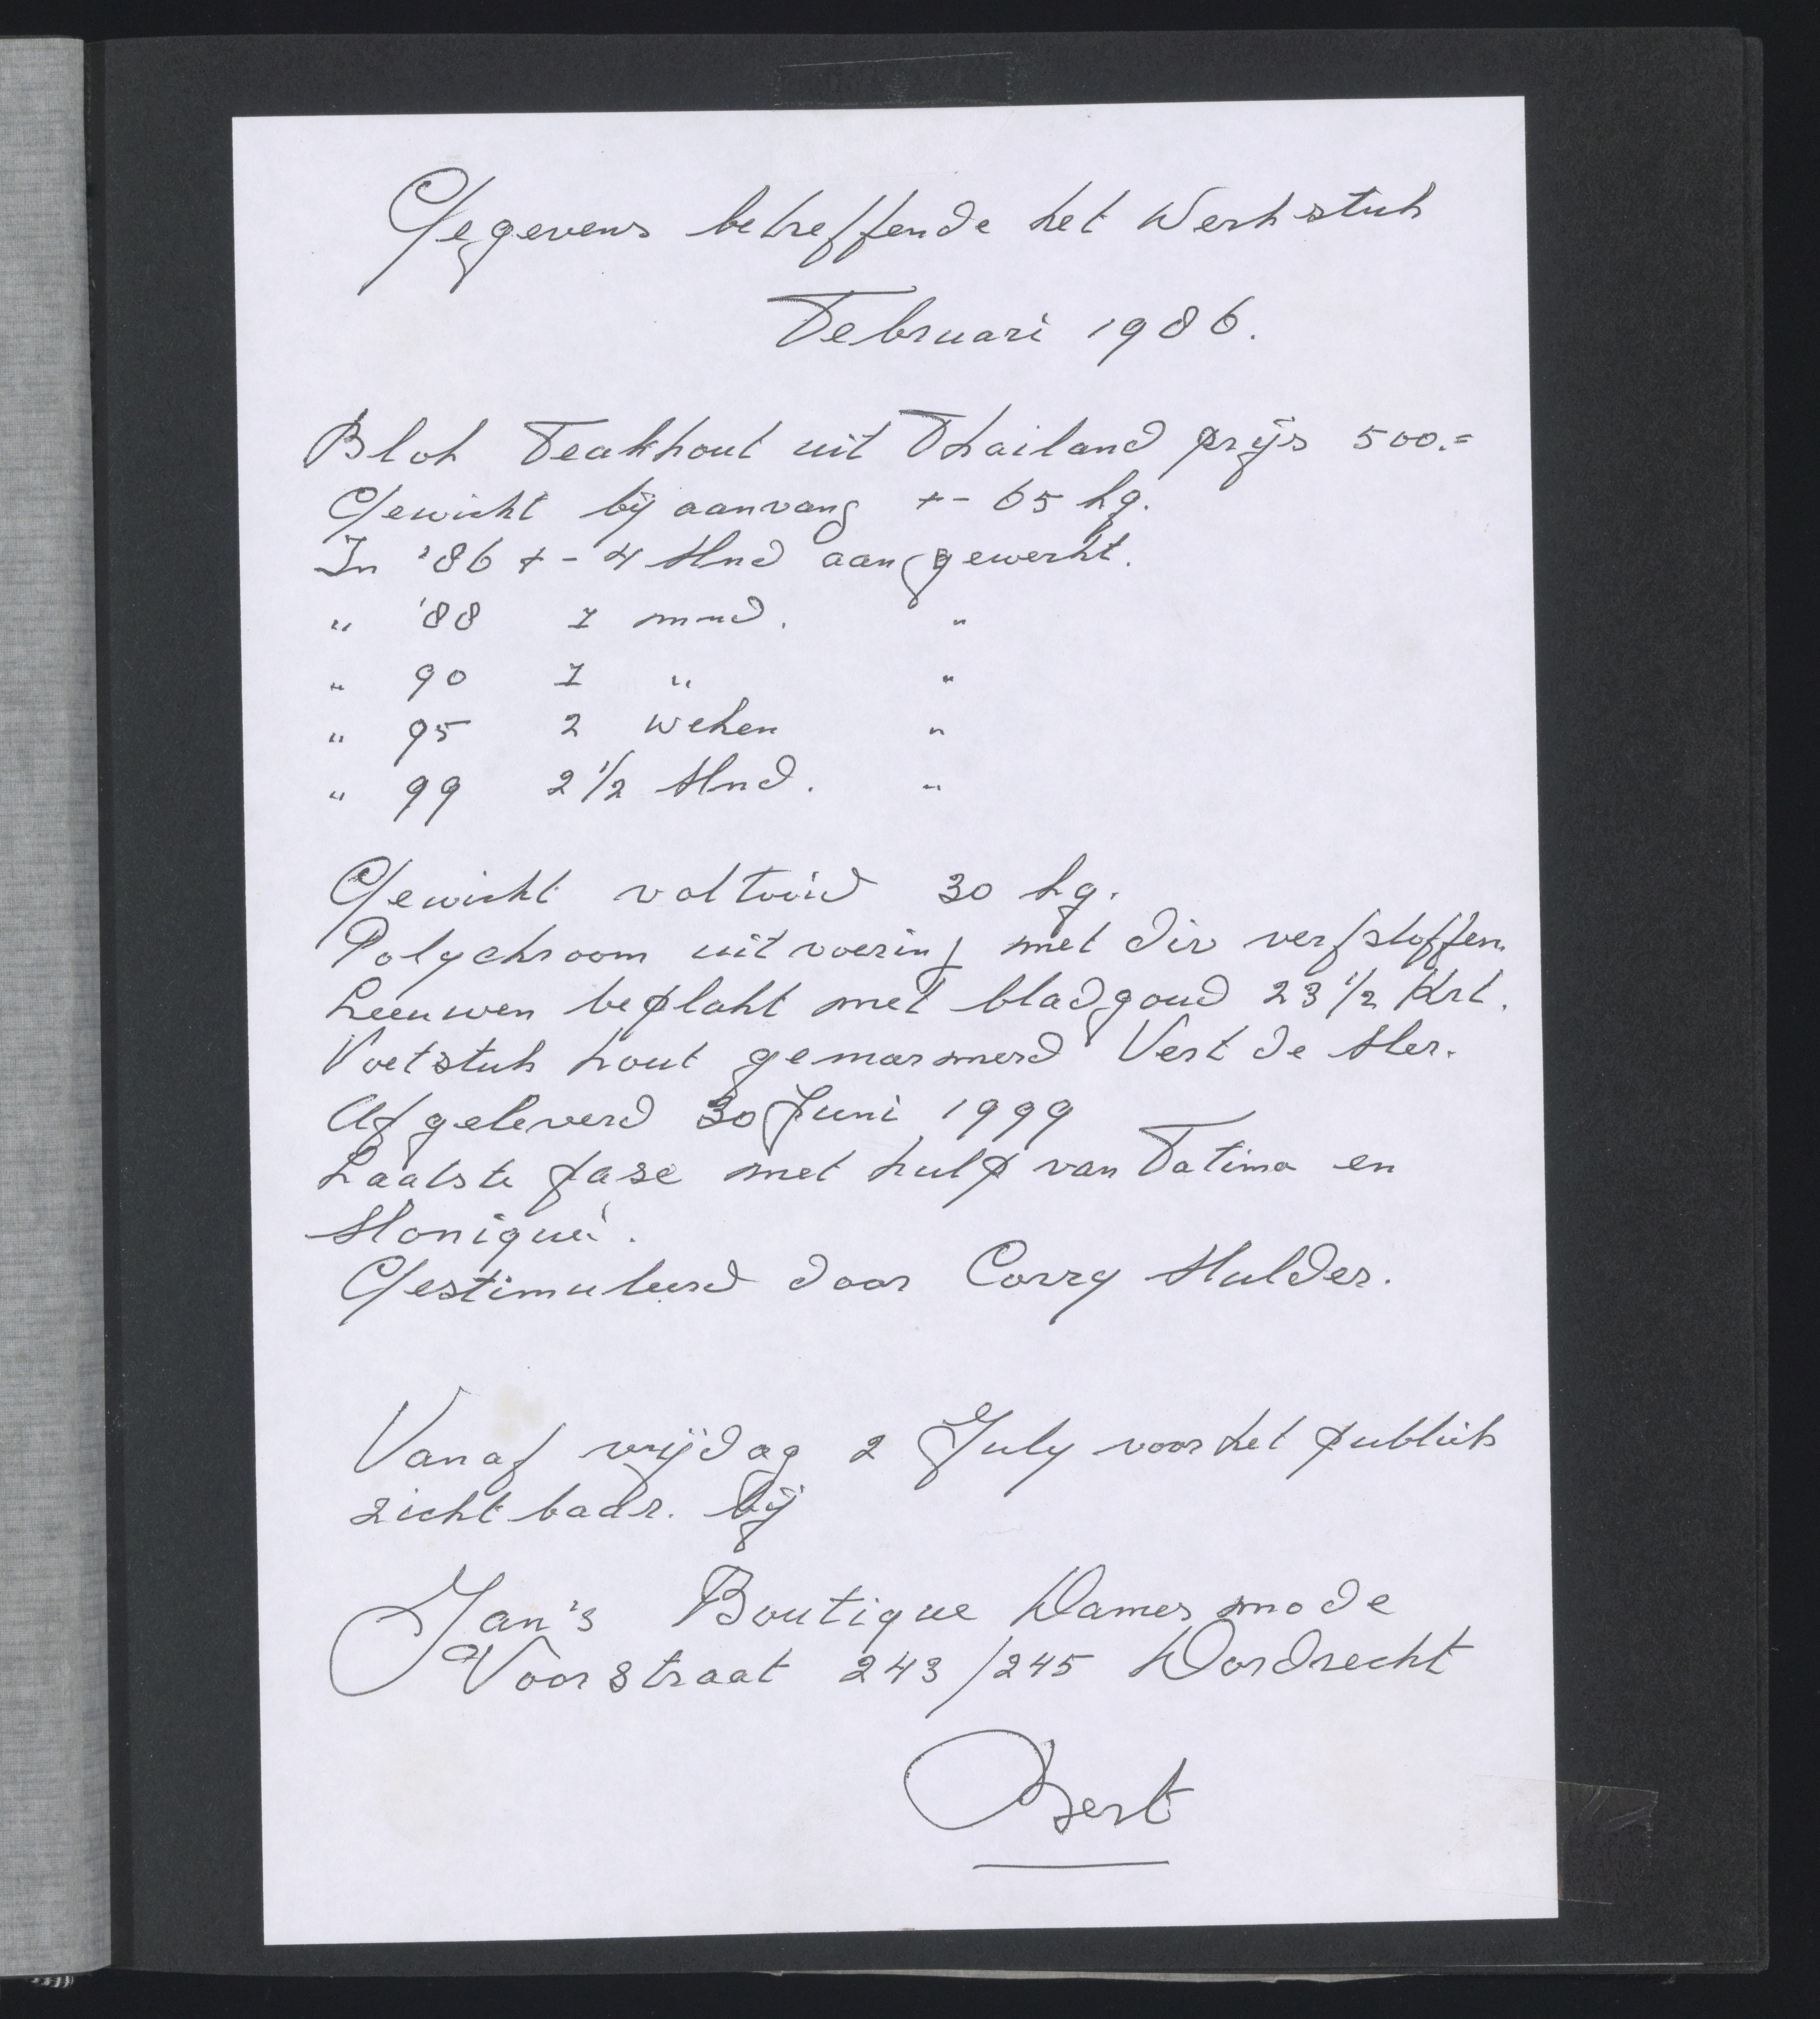 Gegevens betreffende het Werkstuk
Februari 1986.
Blok Teakhout uit Thailand prijs 500.=
Gewicht bij aanvang +- 65 kg.
In '86 +- 4 Mnd aan gewerkt.
" '88 1 mnd. "
" 90 1 " "
" 95 2 weken "
" 99 2 1/2 Mnd. "
Gewicht voltooid 30 kg.
Polychroom uitvoering met div verfstoffen.
Leeuwen beplakt met bladgoud 23 1/2 Krt.
Voetstuk hout gemarmerd Vert de Mer.
Afgeleverd 30 Juni 1999
Laatste fase met hulp van Fatima en
Moniqué.
Gestimuleerd door Corry Mulder.
Vanaf vrijdag 2 July voor het publiek
zichtbaar. bij
Jan's Boutique Damesmode
Voorstraat 243/245 Dordrecht
Bert